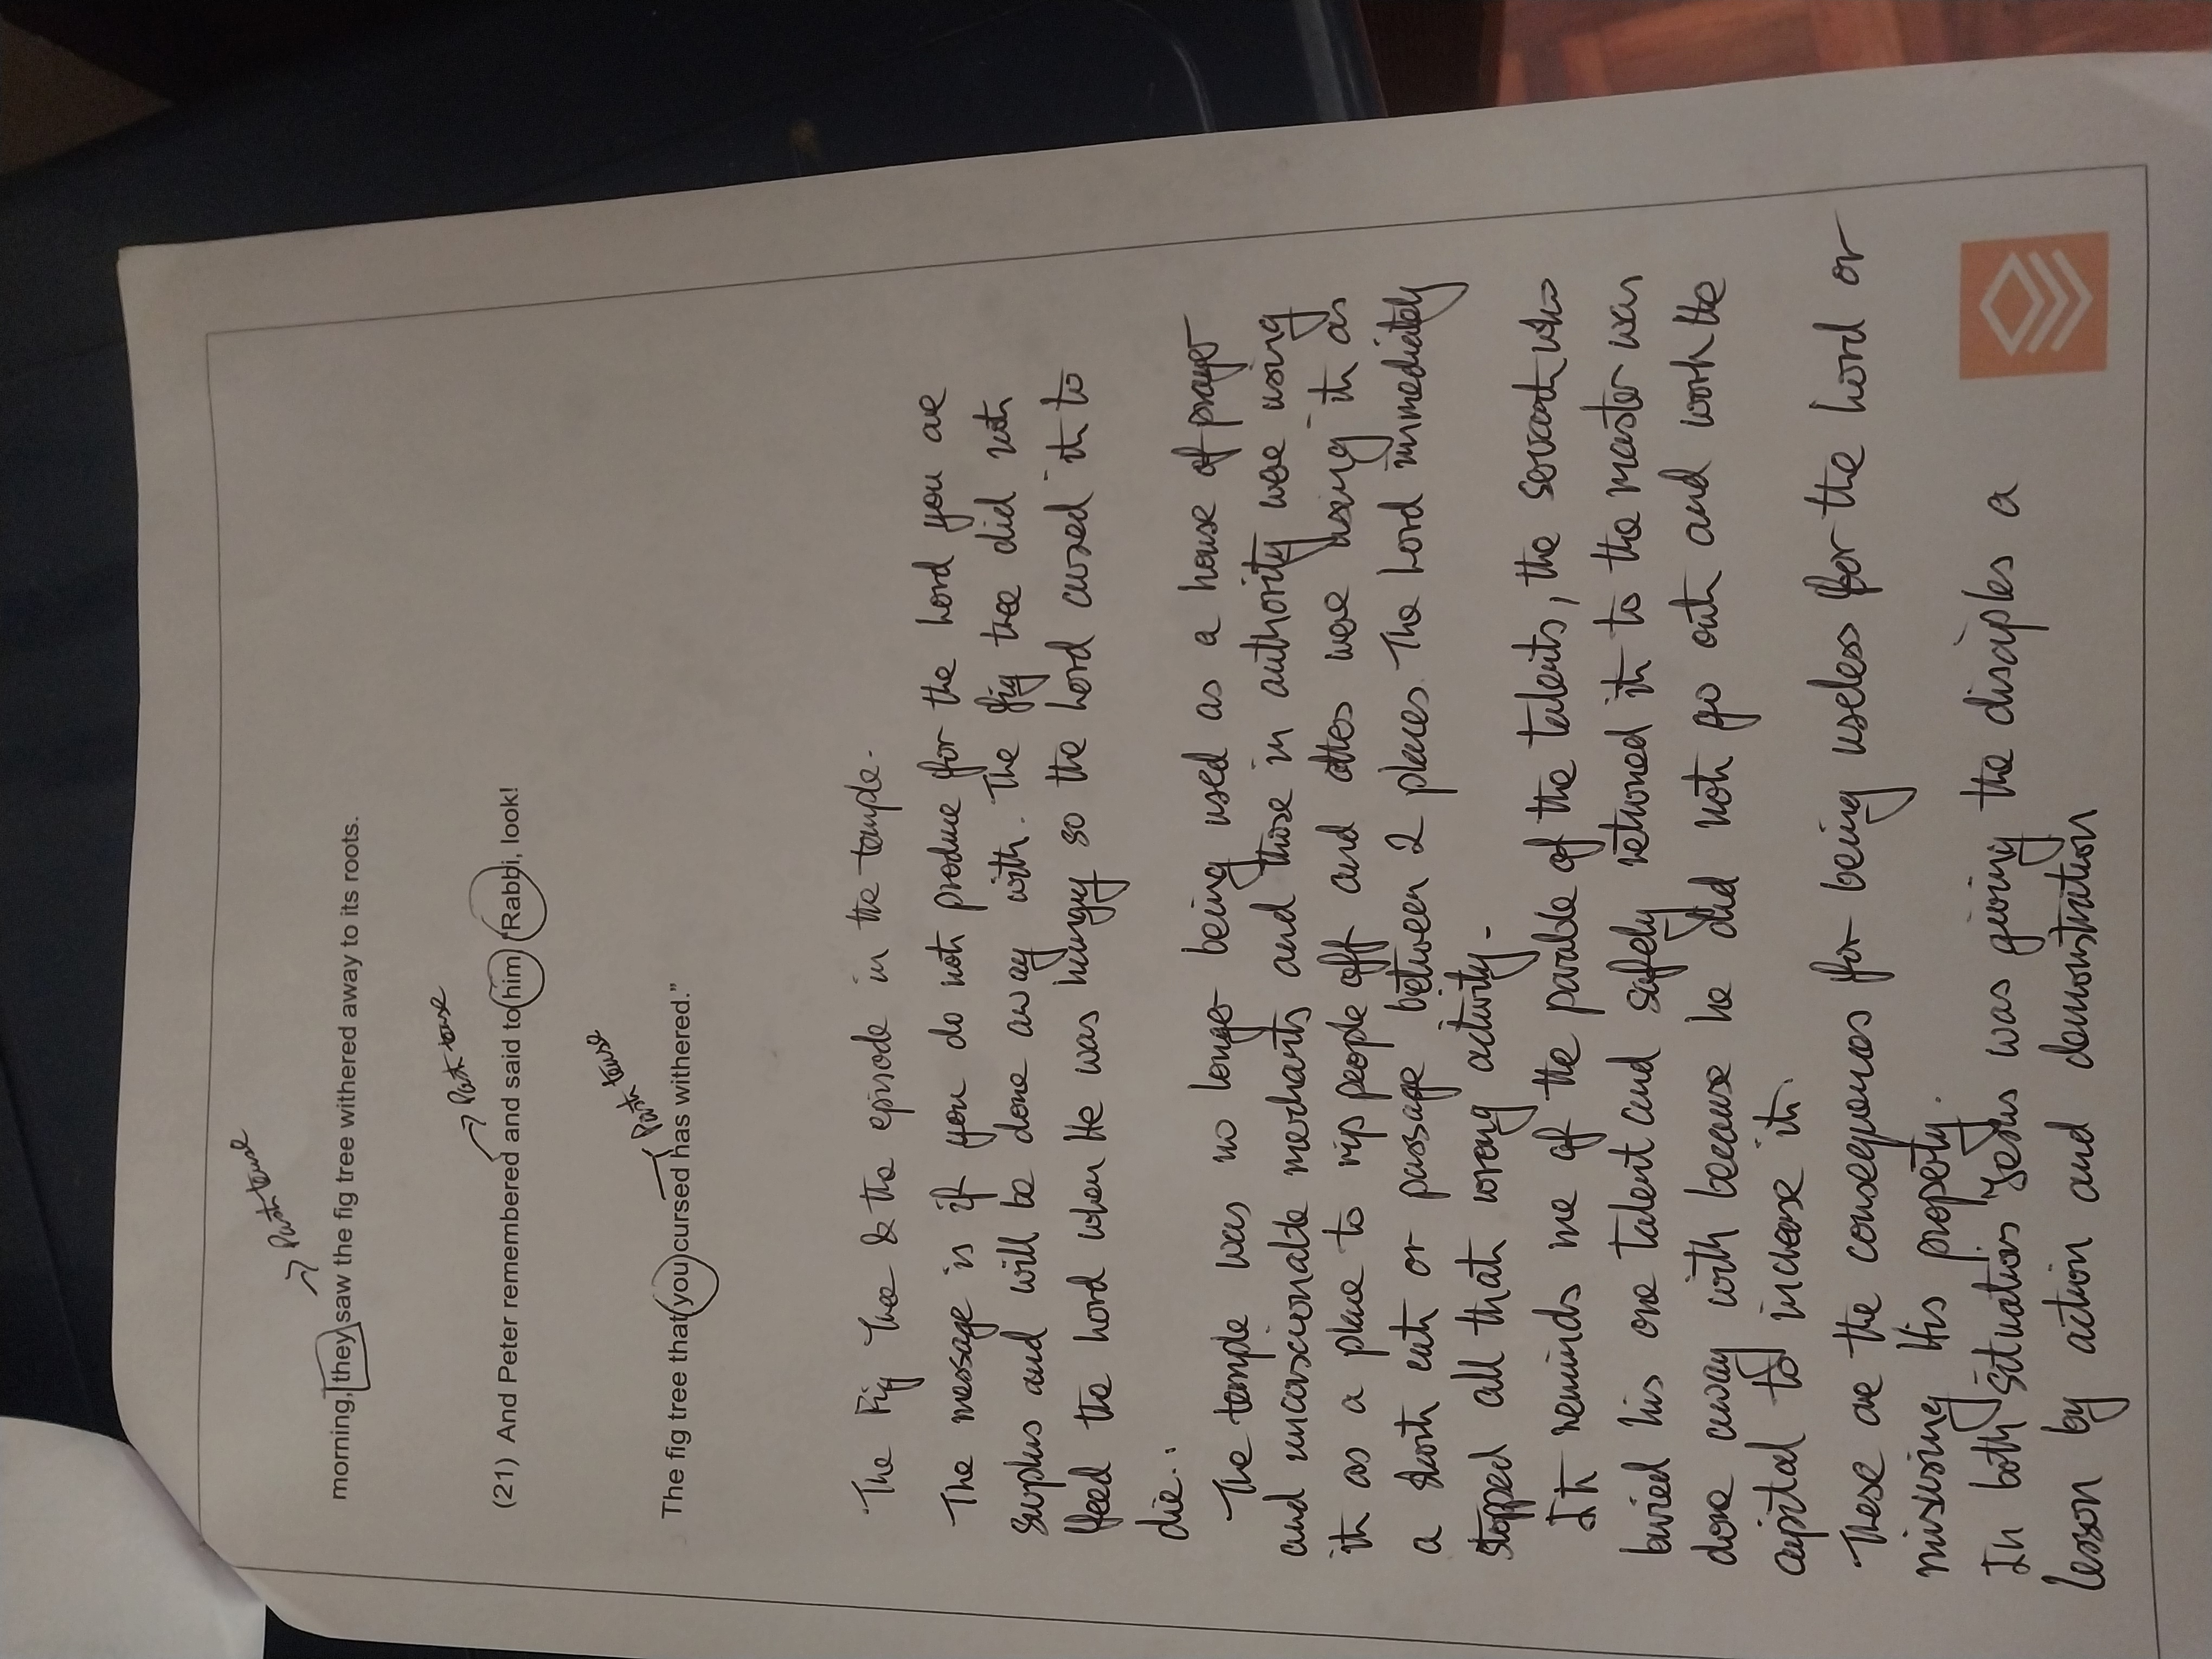 Past tense
morning, they saw the fig tree withered away to its roots.
Past tense
(21) And Peter remembered and said to him, "Rabbi, look!
Past tense
The fig tree that you cursed has withered."
The Fig Tree & the episode in the temple.
The message is if you do not produce for the Lord you are
surplus and will be done away with. The fig tree did not
feed the Lord when He was hungry so the Lord cursed it to
die.
The temple was no longer being used as a house of prayer
and unconscionable merchants and those in authority were using
it as a place to rip people off and others were using it as
a short cut or passage between 2 places. The Lord immediately
stopped all that wrong activity.
It reminds me of the parable of the talents, the servant who
buried his one talent and safely returned it to the master was
done away with because he did not go out and work the
capital to increase it.
These are the consequences for being useless for the Lord or
misusing His property.
In both situations Jesus was giving the disciples a
lesson by action and demonstration